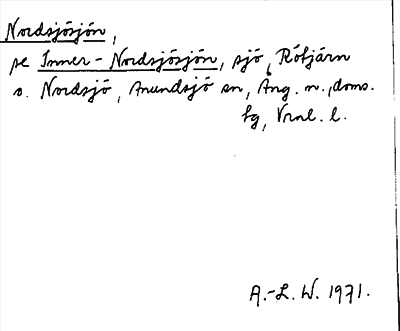 Nordsjösjön,
se Inner-Nordsjösjön, sjö, Rötjärn
o. Nordsjö, Anundsjö sn, Ång. n., doms.
fg, Vrnl. l.
A.-L. W. 1971.